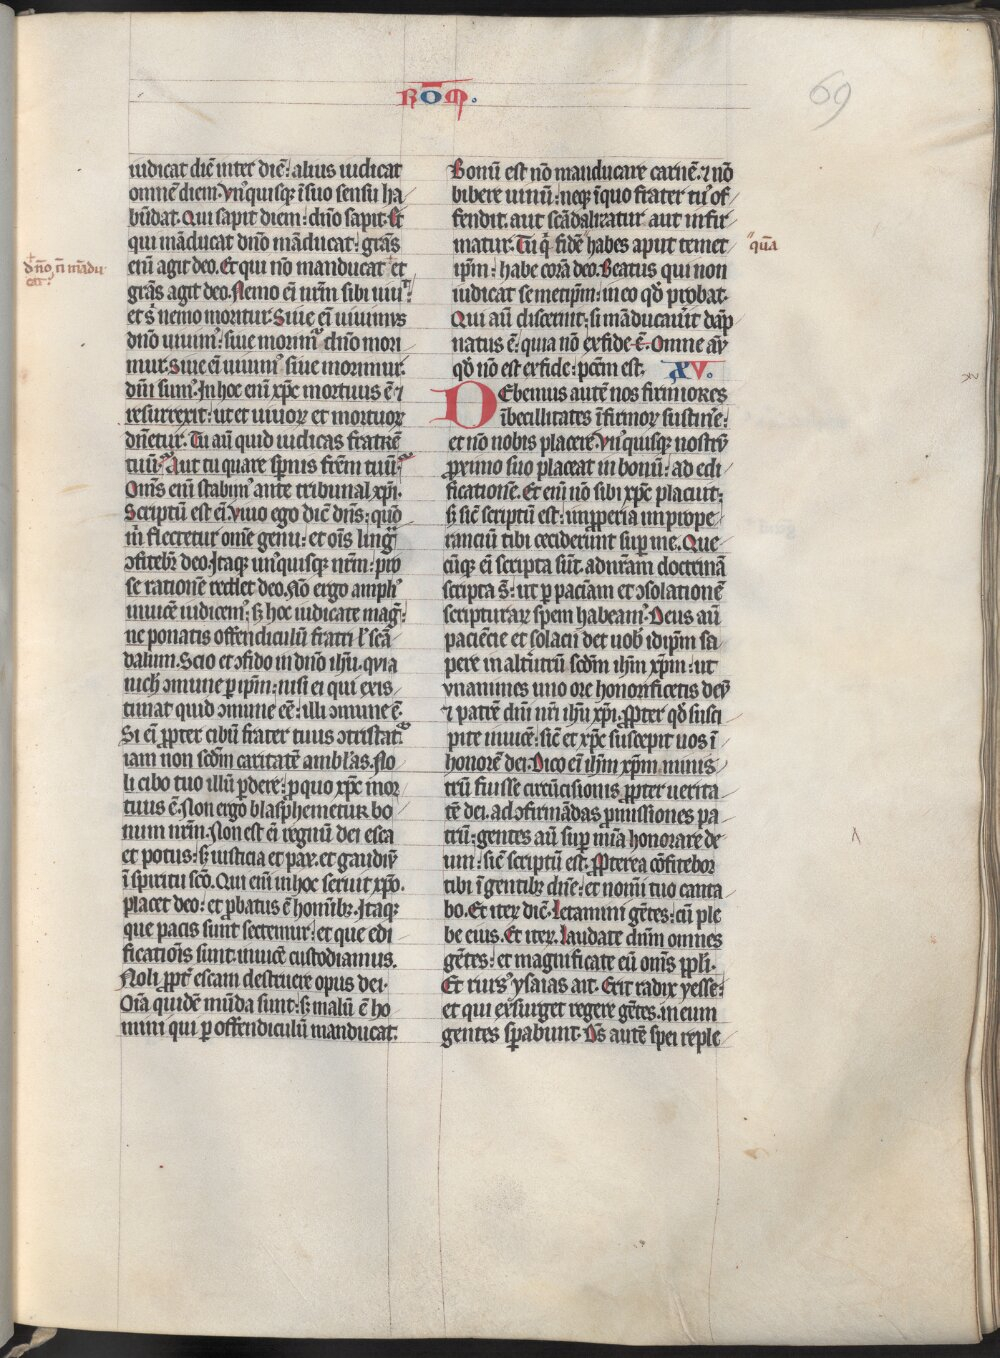 RŌM.
69
iudicat diē inter diē: alius iudicat
omnē diem. Vn⁹quisq; ī suo sensu ha
būdat. Qui sapit diem: dn̄o sapit. Et
qui māducat dn̄o māducat: grās
eni᷒ agit deo. Et qui nō manducat et
dn̄o n̄ mādu
cat:
grās agit deo. Nemo ei᷒ nr̄m sibi uiuit:
et nemo moritur. Siue ei᷒ uiuimus
dn̄o uiuim⁹: siue morim᷒ dn̄o mori
mur. Siue ei᷒ uiuim⁹ siue morimur:
dn̄i sum⁹. In hoc eni᷒ xp̄c mortuus ē ⁊
resurrexit: ut et uiuoꝝ et mortuoꝝ
dn̄etur. Tu aū quid iudicas fratrē
tuū: Aut tu quare sp̄nis fr̄em tuū:
Om̄s eni᷒ stabim⁹ ante tribunal xp̄i.
Scriptū est ei᷒ viuo ego dic̄ dn̄s: quō
m̄ flectetur om̄e genu: et oīs lingᷓ
ꝯfitebr̄ deo. Itaq; un⁹quisq; nr̄m: pro
se rationē reddet deo. Nō ergo ampli⁹
inuicē iudicem⁹: sꝫ hoc iudicate magꝭ:
ne ponatis offendiculū fratri l' scā
dalum. Scio et ꝯfido in dn̄o ihū. qvia
nich̄ ꝯmune ꝑ ip̄m: nisi ei qui exis
timat quid ꝯmune eē: illi ꝯmune ē.
Si ei᷒ ꝓpter cibū frater tuus ꝯtristat᷒
iam non scd̄m caritatē ambl'as. No
li cibo tuo illū ꝑdere: ꝓ quo xp̄c mor
tuus ē. Non ergo blasphemetur bo
num nr̄m. Non est ei᷒ regnū dei esca
et potus: sꝫ iusticia et pax. et gaudiū
ī spiritu scō. Qui eni᷒ in hoc seruit xp̄o.
placet deo: et ꝓbatus ē homībꝫ. Itaq;
que pacis sunt sectemur: et que edi
ficatiōis sunt: inuicē custodiamus.
Noli ꝓpt᷒ escam destruere opus dei.
Oīa quidē mūda sunt: sꝫ malū ē ho
mini qui ꝑ offendiculū manducat.
Bonū est nō manducare carnē. ⁊ nō
bibere uinū: neq; ī quo frater tu⁹ of
fendit. aut scādalizatur aut infir
matur. Tu q̄ fidē habes aput temet
quā
ip̄m: habe corā deo. Beatus qui non
iudicat semetip̄m: in eo qd̄ probat.
Qui aū discernit: si māducau᷒it dāp
natus ē: quia nō ex fide ē. Omne aū
qd̄ nō est ex fide: pcc̄m est. XV.
DEbemus autē nos firmiores
ībecillitates īfirmoꝝ sustinē:
et nō nobis placere. Vn⁹quisq; nostrū
ꝓximo suo placeat in bonū: ad edi
ficationē. Et eni᷒ nō sibi xp̄c placuit:
sꝫ sic̄ scriptū est: inꝓperia inprope
rancium tibi ceciderunt suꝑ me. Que
cūq; ei᷒ scripta sūt. ad nr̄am doctrinā
scripta s̄: ut ꝑ paciam et ꝯsolationē
scripturaꝝ spem habeam⁹. Deus aū
paciēcie et solacii det uob̄ idip̄m sa
pere in alt᷒utrū scd̄m ihm̄ xp̄m: ut
vnanimes uno ore honorificetis deū
⁊ patrē dn̄i nr̄i ihū xp̄i. ꝓpter qd̄ susci
pite inuicē: sic̄ et xp̄c suscepit uos ī
honorē dei. Dico ei᷒ ihm̄ xp̄m minis
trū fuisse circūcisionis ꝓpter uerita
tē dei. ad ꝯfirmādas ꝓmissiones pa
trū: gentes aū suꝑ mīa honorare de
um: sic̄ scriptū est. ꝓpterea cōfitebor
tibi ī gentibꝫ dn̄e: et nomī tuo canta
bo. Et iteꝝ dic̄. Letamini gētes: cū ple
be eius. Et iteꝝ. Laudate dn̄m omnes
gētes: et magnificate eū om̄s ppl̄i.
Et rurs⁹ ysaias ait. Erit radix yesse:
et qui exsurget regere gētes. in eum
gentes sꝑabunt. Ds̄ autē spei reple